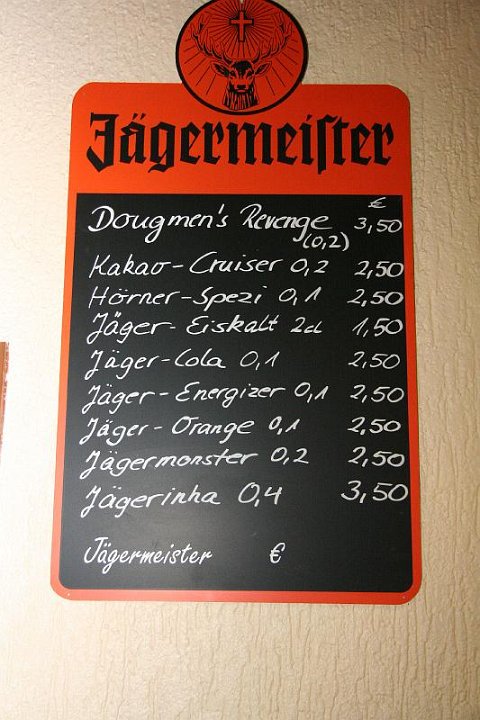 Jägermeiſter
€
Dougmen's Revenge 3,50
(0,2)
Kakao-Cruiser 0,2 2,50
Hörner-Spezi 0,1 2,50
Jäger-Eiskalt 2cl 1,50
Jäger-Cola 0,1 2,50
Jäger-Energizer 0,1 2,50
Jäger-Orange 0,1 2,50
Jägermonster 0,2 2,50
Jägerinha 0,4 3,50
Jägermeister €